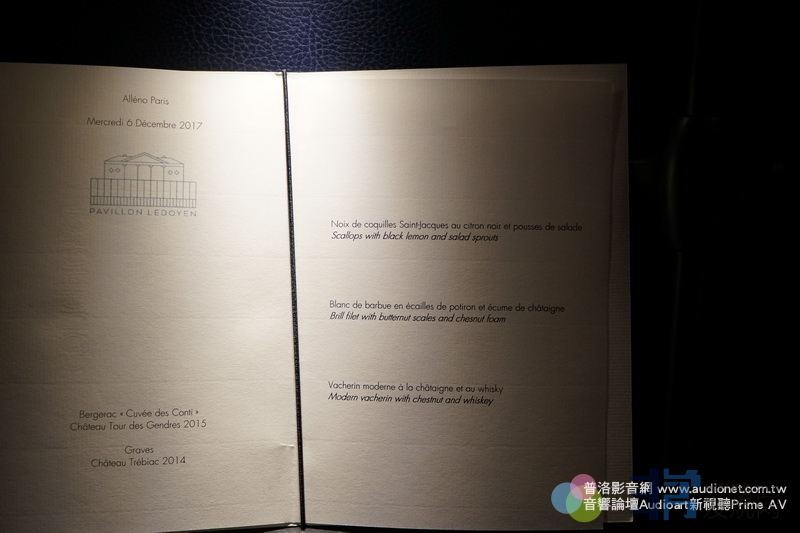 Alléno Paris
Mercredi 6 Décembre 2017
PAVILLON LEDOYEN
Bergerac « Cuvée des Conti »
Château Tour des Gendres 2015
Graves
Château Trébiac 2014
Noix de coquilles Saint-Jacques au citron noir et pousses de salade
Scallops with black lemon and salad sprouts
Blanc de barbue en écailles de potiron et écume de châtaigne
Brill filet with butternut scales and chesnut foam
Vacherin moderne à la châtaigne et au whisky
Modern vacherin with chestnut and whiskey
普洛影音網 www.audionet.com.tw
音響論壇Audioart新視聽Prime AV